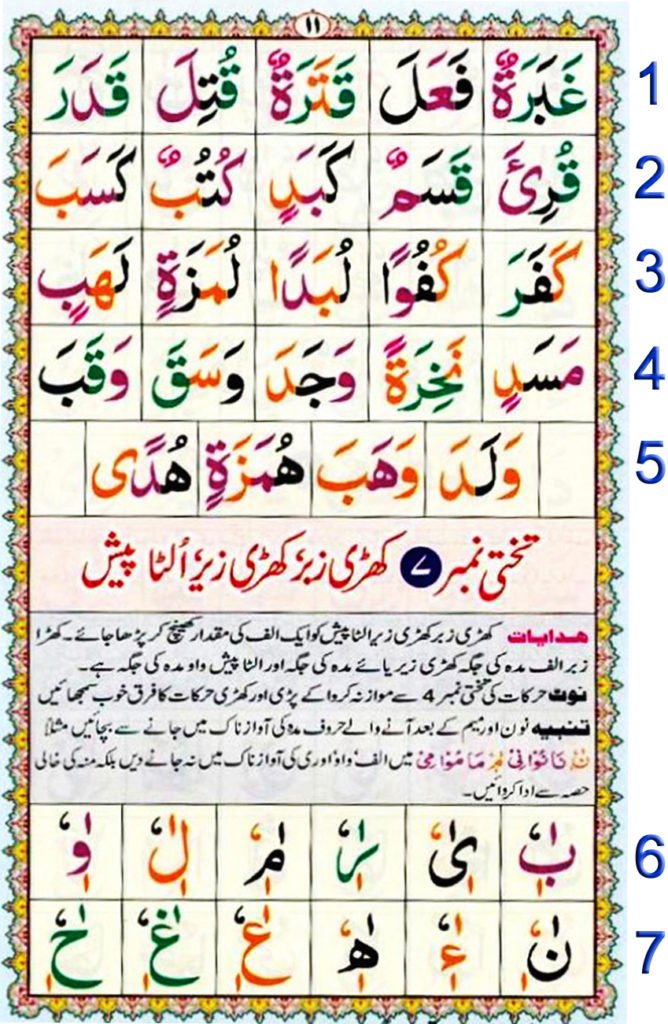 ۱۱
غَبَرَةٌ فَعَلَ قَتَرَةٌ قُتِلَ قَدَرَ 1
قُرِئَ قَسَمٌ كَبَدٍ كُتُبٌ كَسَبَ 2
كَفَرَ كُفُوًا لُبَدًا لُمَزَةٍ لَهَبٍ 3
مَسَدٍ نَخِرَةً وَجَدَ وَسَقَ وَقَبَ 4
وَلَدَ وَهَبَ هُمَزَةٍ هُدًى 5
تختی نمبر ۷ کھڑی زبر کھڑی زیر اُلٹا پیش
ہدایات کھڑی زبر کھڑی زیر الٹا پیش کو ایک الف کی مقدار کھینچ کر پڑھا جائے۔ کھڑا
زبر الف مدہ کی جگہ کھڑی زیر یائے مدہ کی جگہ اور الٹا پیش واو مدہ کی جگہ ہے۔
نوٹ حرکات کی تختی نمبر 4 سے موازنہ کروا کے پڑی اور کھڑی حرکات کا فرق خوب سمجھائیں
تنبیہ نون اور میم کے بعد آنے والے حروف مدہ کی آواز ناک میں جانے سے بچائیں مثلاً
نَا نُوْا نِیْ مَا مُوْا مِیْ میں الف واو اور ی کی آواز ناک میں نہ جانے دیں بلکہ منہ کی خالی
حصہ سے ادا کروائیں۔
بٰٖٗ یٰٖٗ رٰٖٗ مٰٖٗ لٰٖٗ وٰٖٗ 6
نٰٖٗ ءٰٖٗ هٰٖٗ عٰٖٗ غٰٖٗ حٰٖٗ 7